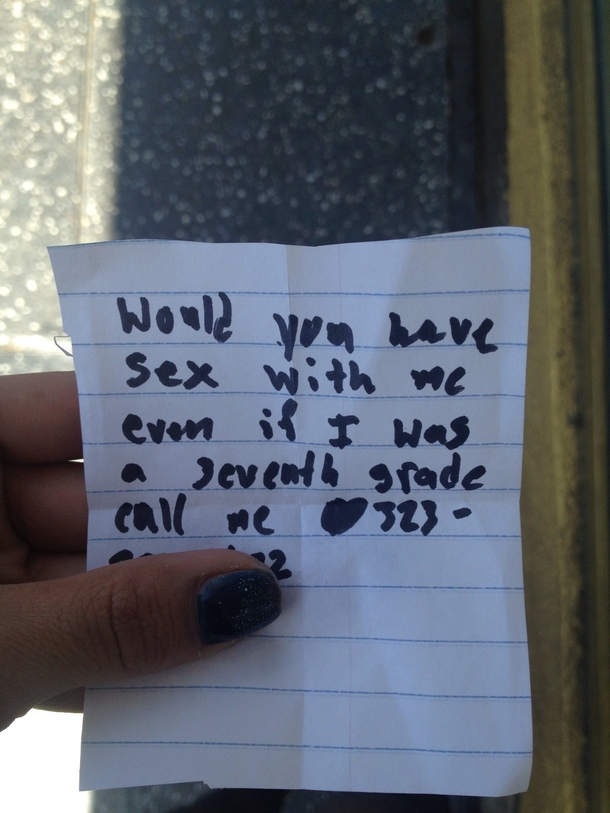 Would you have
sex with me
even if I was
a seventh grade
call me ♥ 323-